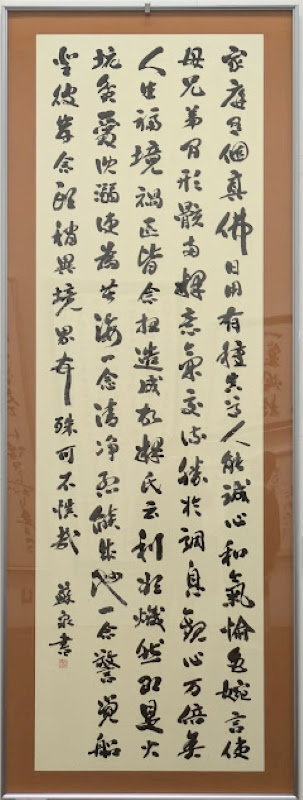 家庭有個真佛日用有種真道人能誠心和氣愉色婉言使
母兄弟間形骸兩釋意氣交流勝於調息觀心万倍矣
人生福境禍区皆念想造成故釋氏云利欲熾然即是火
坑貪愛沈溺便為苦海一念清净烈焰成池一念警覺船
登彼岸念頭稍異境界頓殊可不慎哉 蘇泉書